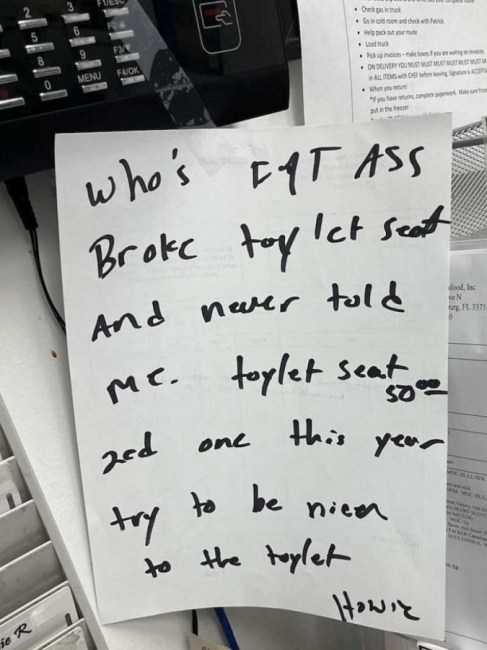 2
3
FT/ESC
5
6
8
9
F3/
0
MENU
F4/OK
• Check gas in truck
• Go in cold room and check with Patrick
• Help pack out your route
• Load truck
• Pick up invoices – make boxes if you are waiting on invoices.
• ON DELIVERY YOU MUST MUST MUST MUST MUST MUST
in ALL ITEMS with CHEF before leaving. Signature is
• When you return:
*If you have returns, complete paperwork. Make sure
put in the freezer
who's FAT ASS
Broke toylet seat
And never told
me. toylet seat
50⁰⁰
2cd one this year
try to be nicer
to the toylet
Howie
food, Inc
ve N
urg, FL 3371
0
ie R